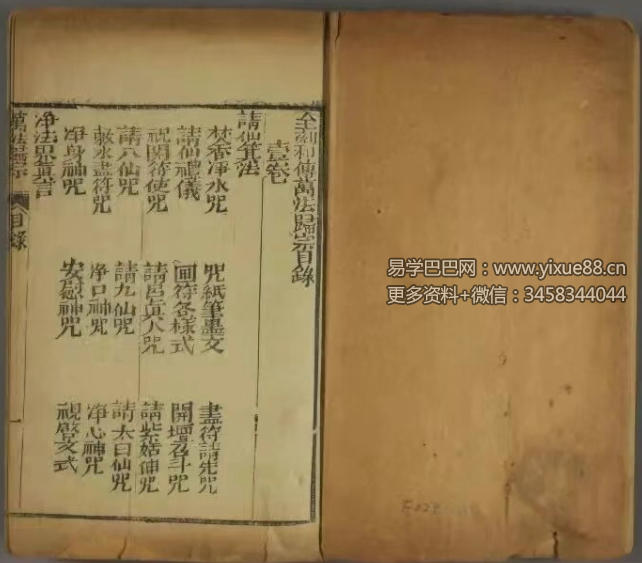 全傳萬法歸宗目錄
壹卷
請仙箕法
焚香净水咒 咒紙筆墨文 畫符請先咒
請仙禮儀 画符各樣式 開壇召斗咒
祝關符使咒 請呂真人咒 請紫姑伸咒
請八仙咒 請九仙咒 請太白仙咒
敕水畫符咒 净口神咒 净心神咒
净身神咒 安慰神咒 視啓文式
净法界真言
萬法歸宗 目錄
易学巴巴网：www.yixue88.cn
更多资料+微信：3458344044